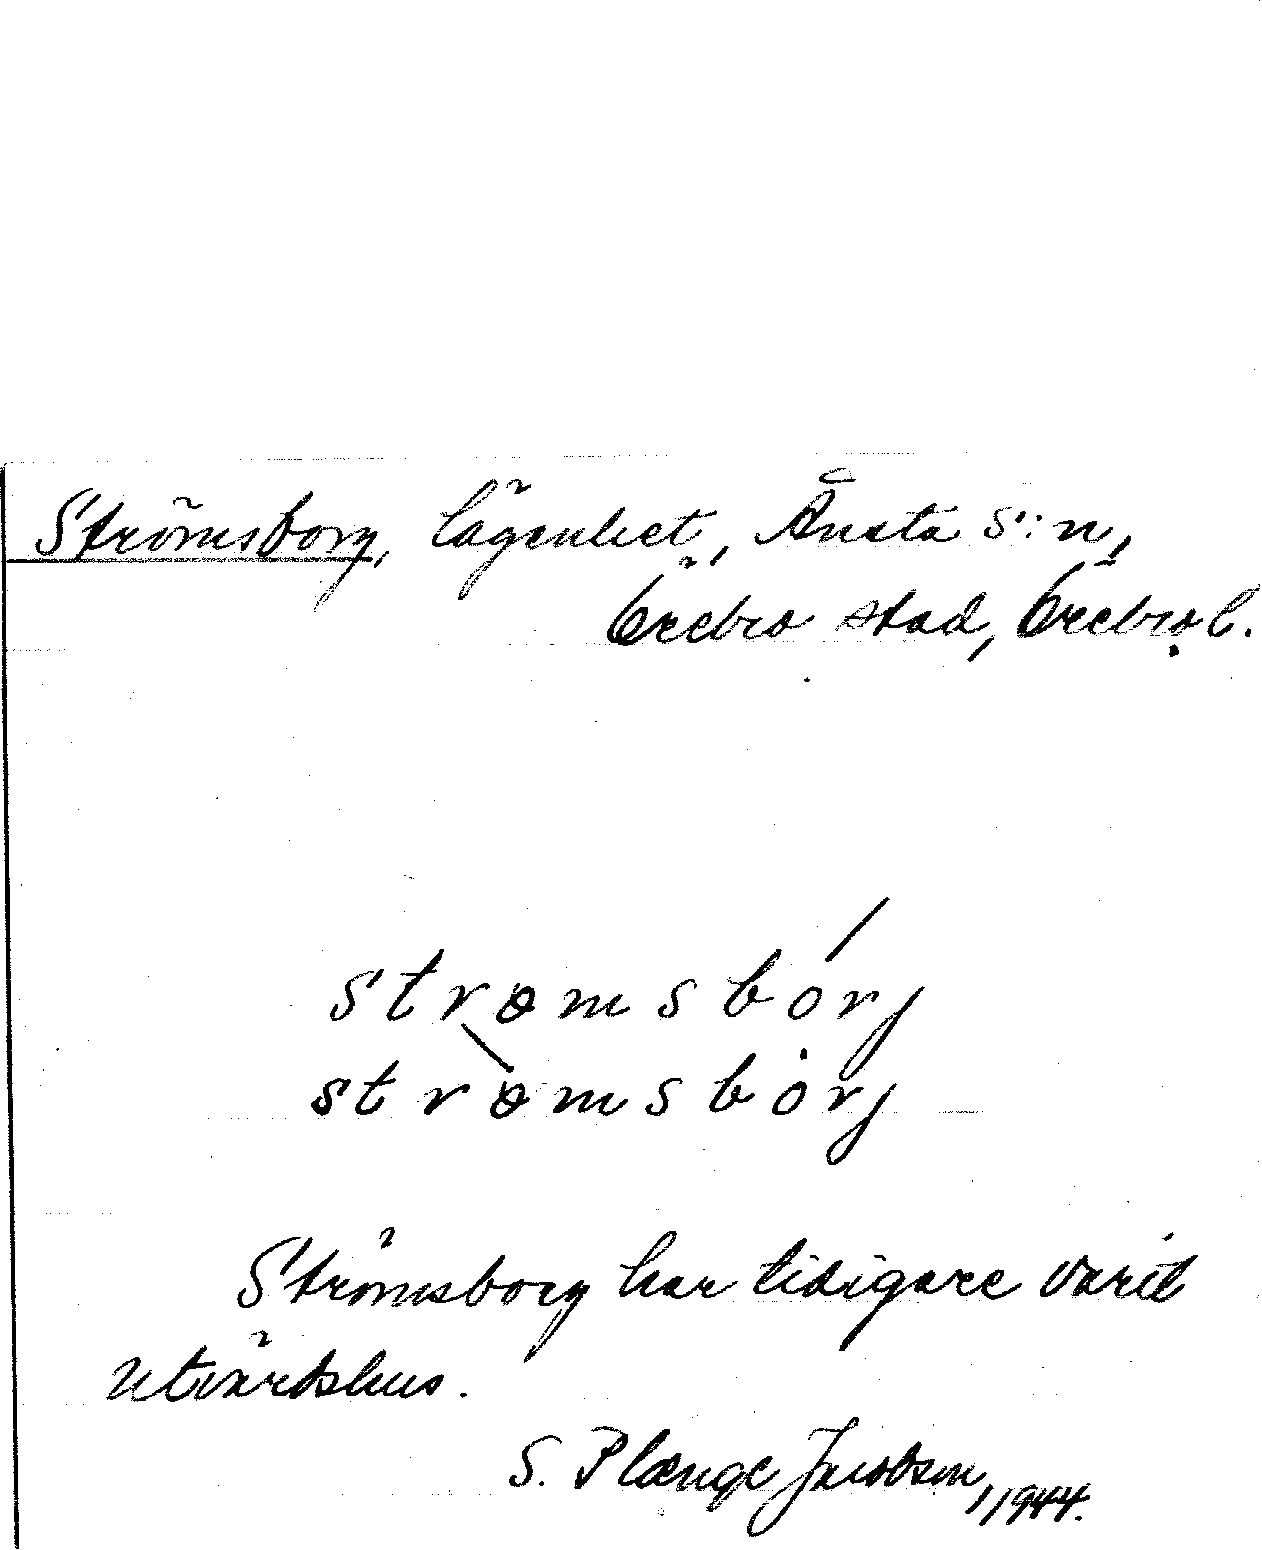 Strömsborg, lägenhet, Ånsta s:n,
Örebro stad, Örebro l.
strømsbórj
strømsbȯrj
Strömsborg har tidigare varit
utvärdshus.
S. Plænge Jacobson, 1944.